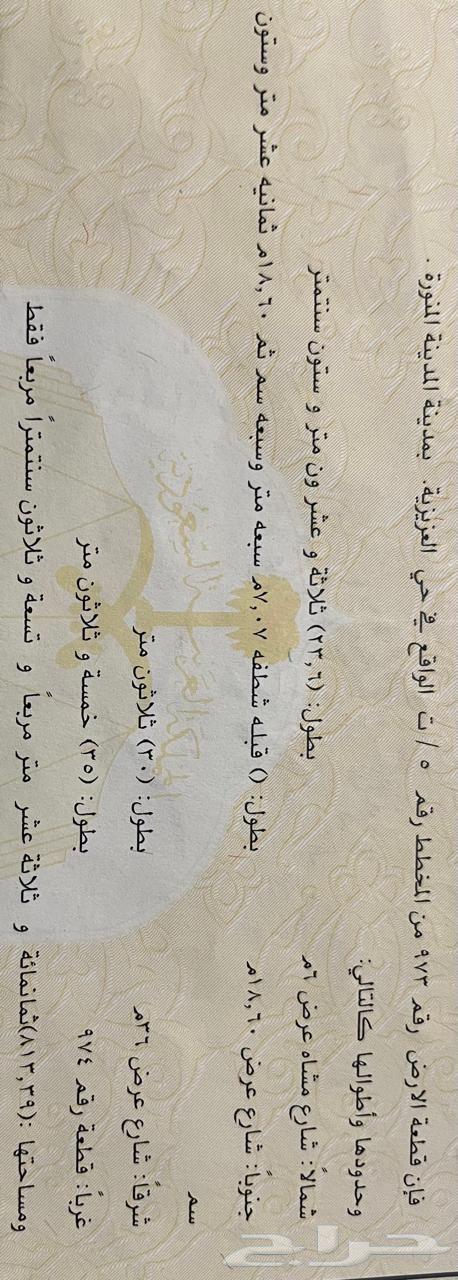 فإن قطعة الارض رقم ٩٧٣ من المخطط رقم ٥ / ت الواقع في حي العزيزية. بمدينة المدينة المنورة .
وحدودها وأطوالها كالتالي:
شمالاً: شارع مشاه عرض ٦م بطول: (٢٣,٦) ثلاثة و عشر ون متر و ستون سنتمتر
جنوباً: شارع عرض ١٨,٦٠م بطول: () قبله شطفه ٧,٠٧م سبعه متر وسبعه سم ثم ١٨,٦٠م ثمانيه عشر متر وستون
سم
شرقاً: شارع عرض ٣٦م بطول: (٣٠) ثلاثون متر
غرباً: قطعة رقم ٩٧٤ بطول: (٣٥) خمسة و ثلاثون متر
ومساحتها :(٨١٣,٣٩)ثمانمائة و ثلاثة عشر متر مربعاً و تسعة و ثلاثون سنتمتراً مربعاً فقط
المملكة العربية السعودية
حراج